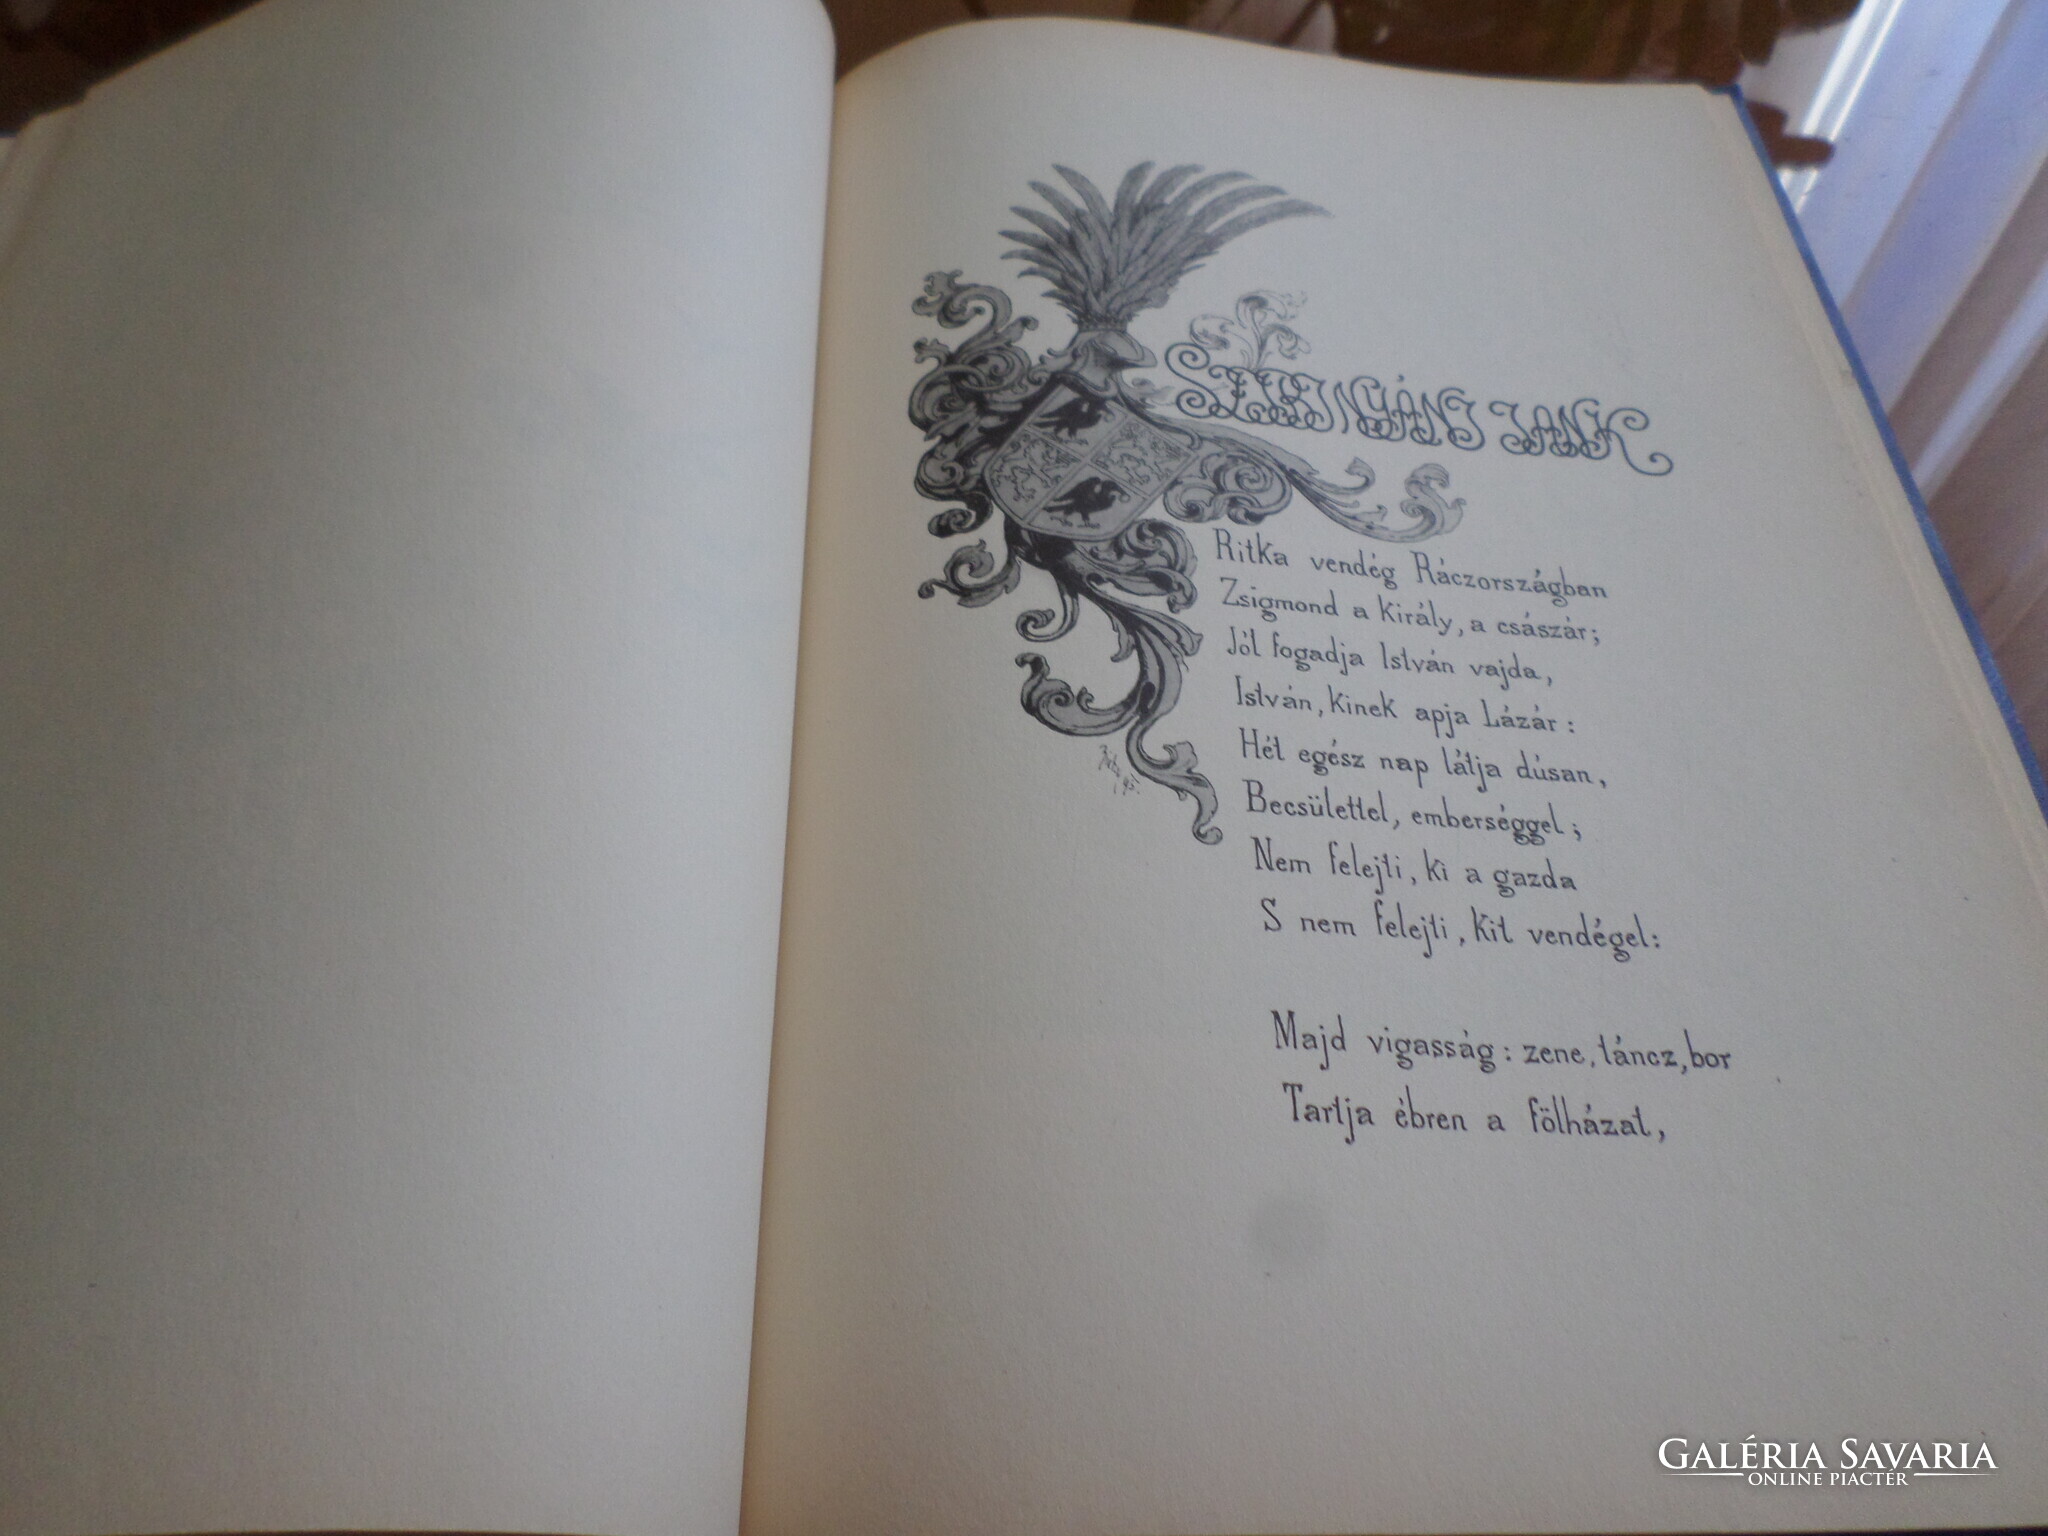 SZIBINYÁNI JANK
Ritka vendég Ráczországban
Zsigmond a király, a császár;
Jól fogadja István vajda,
István, kinek apja Lázár:
Hét egész nap látja dúsan,
Becsülettel, emberséggel;
Nem felejti, ki a gazda
S nem felejti, kit vendégel:
Majd vigasság: zene, táncz, bor
Tartja ébren a fölházat,
GALÉRIA SAVARIA
ONLINE PIACTÉR